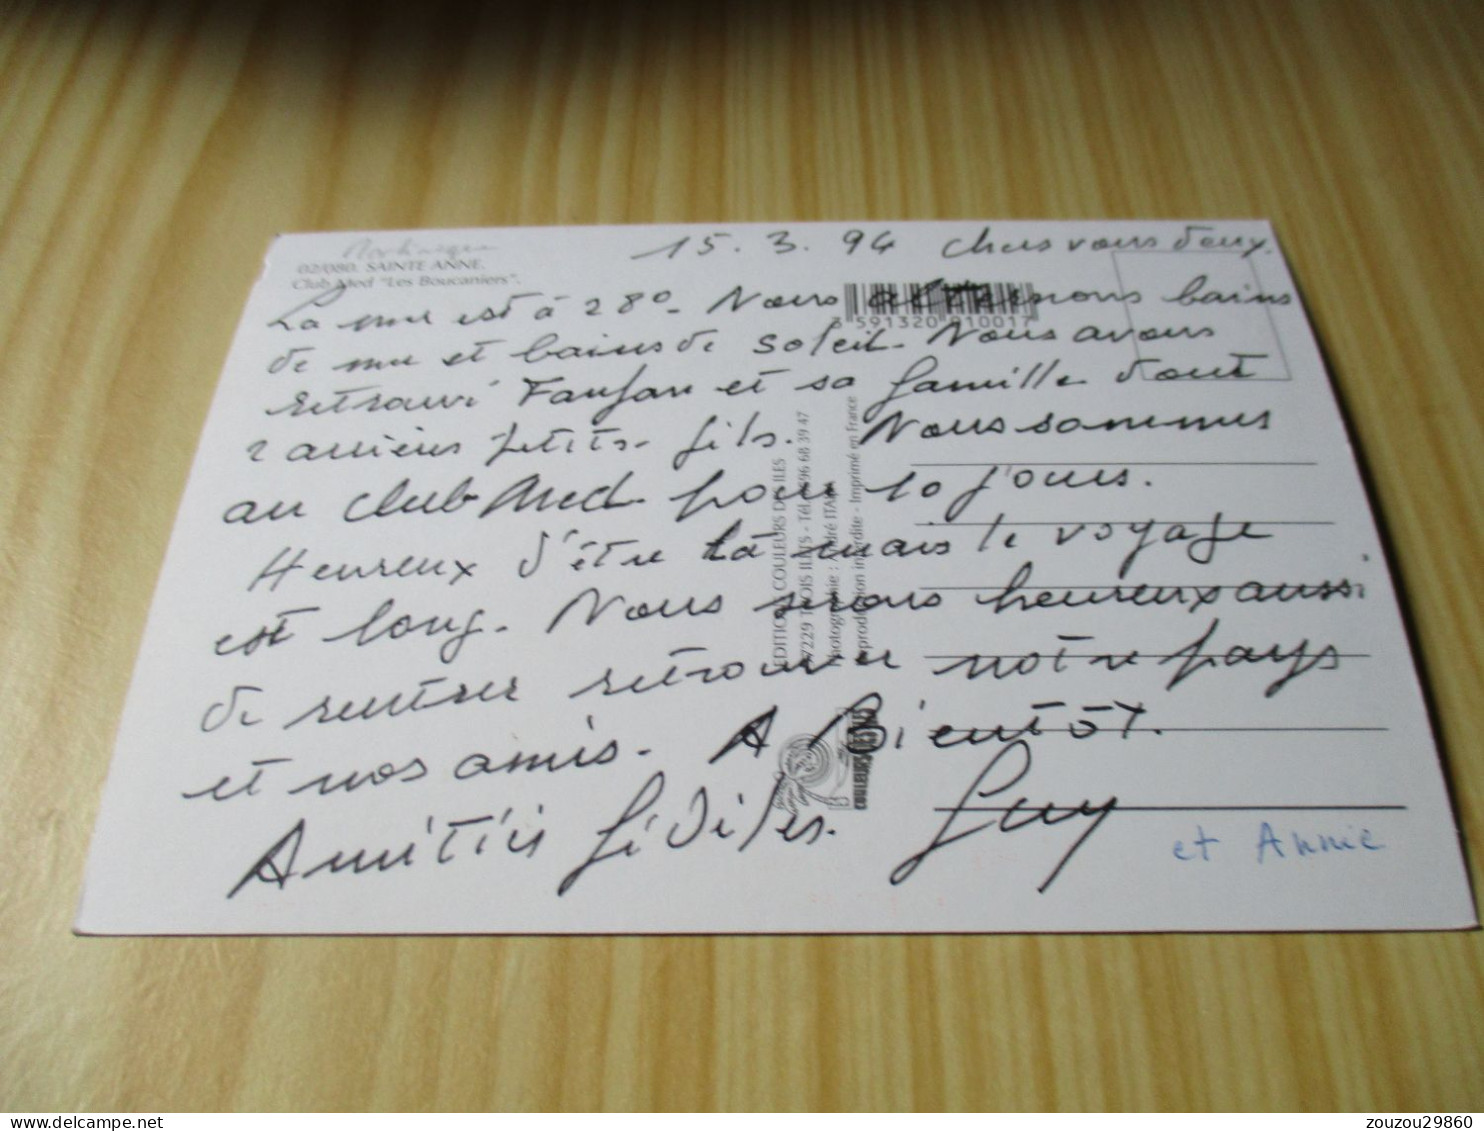 Martinique
02/080. SAINTE ANNE.
Club Med "Les Boucaniers".
15.3.94 Chers vous deux.
La mer est à 28°. Nous alternons bains
de mer et bains de soleil. Nous avons
retrouvé Fanfan et sa famille dont
2 arrières petits-fils. Nous sommes
au club Med pour 10 jours.
Heureux d'être là mais le voyage
est long. Nous serons heureux aussi
de rentrer retrouver notre pays
et nos amis. A Bientôt.
Amitiés fidèles. Guy
et Annie
3 591320 910017
EDITIONS COULEURS DES ILES
97229 TROIS ILETS - Tél. 596 68 39 47
Photographie : André ITAR
Reproduction interdite - Imprimé en France
COULEURS DES ILES
zouzou29860